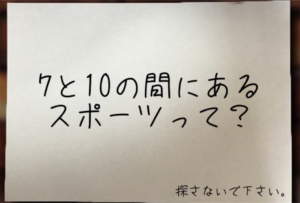 7と10の間にある
スポーツって？
探さないで下さい。